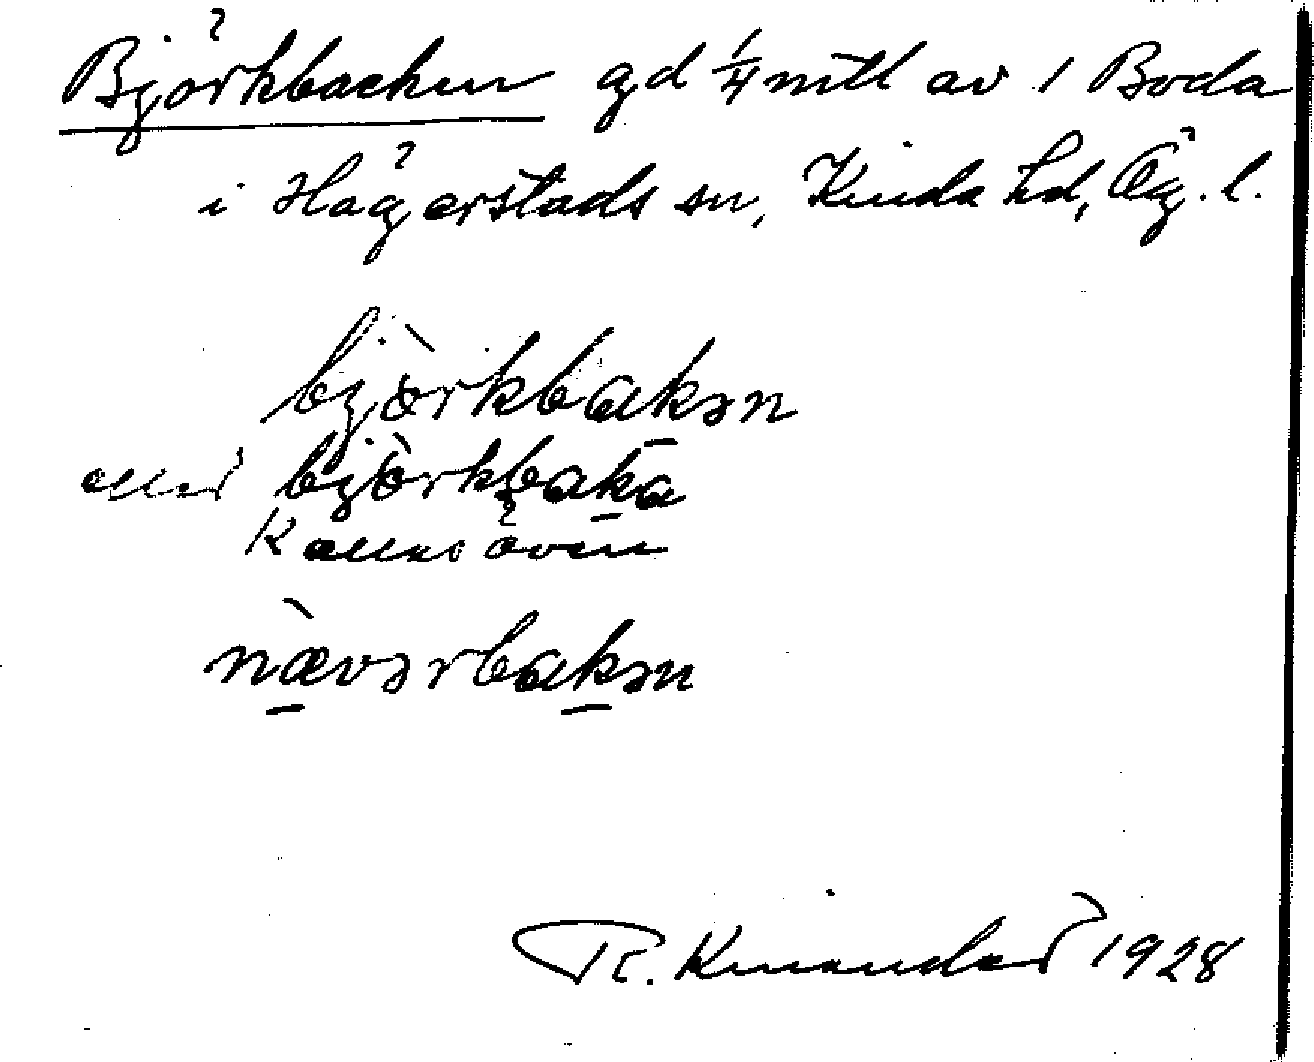 Björkbacken gd 1/4 mtl av 1 Boda
i Hägerstads sn, Kinda hd, Ög. l.
bjòrkbakən
eller bjòrkbaka
Kallas även
nævərbakən
R. Kinander 1928